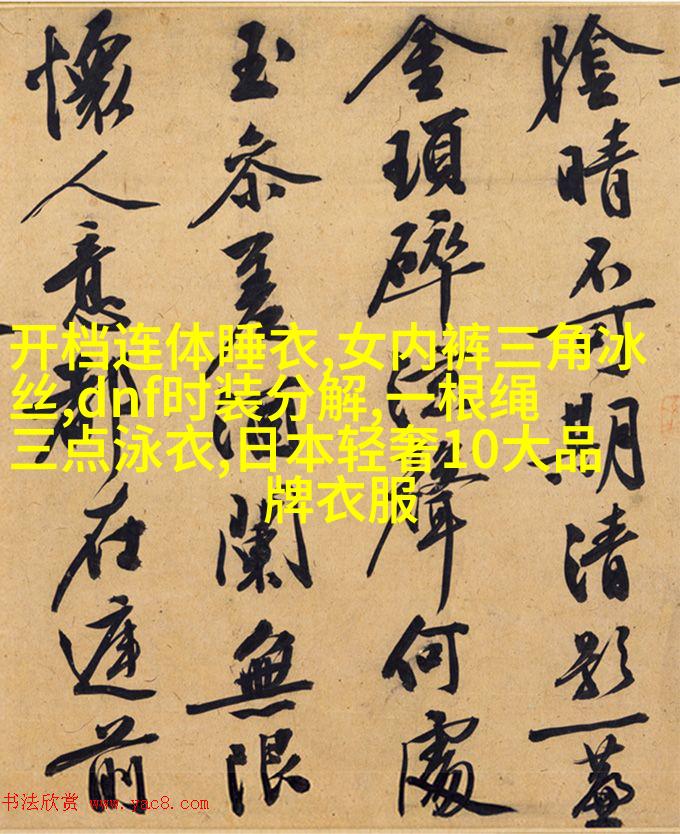 陰晴不可期清影一
金瑣碎聲何處
玉參差蘭無限
懷人意都在前
开档连体睡衣,女内裤三角冰
丝,dnf时装分解,一根绳
三点泳衣,日本轻奢10大品
牌衣服
书法欣赏 www.yac8.com